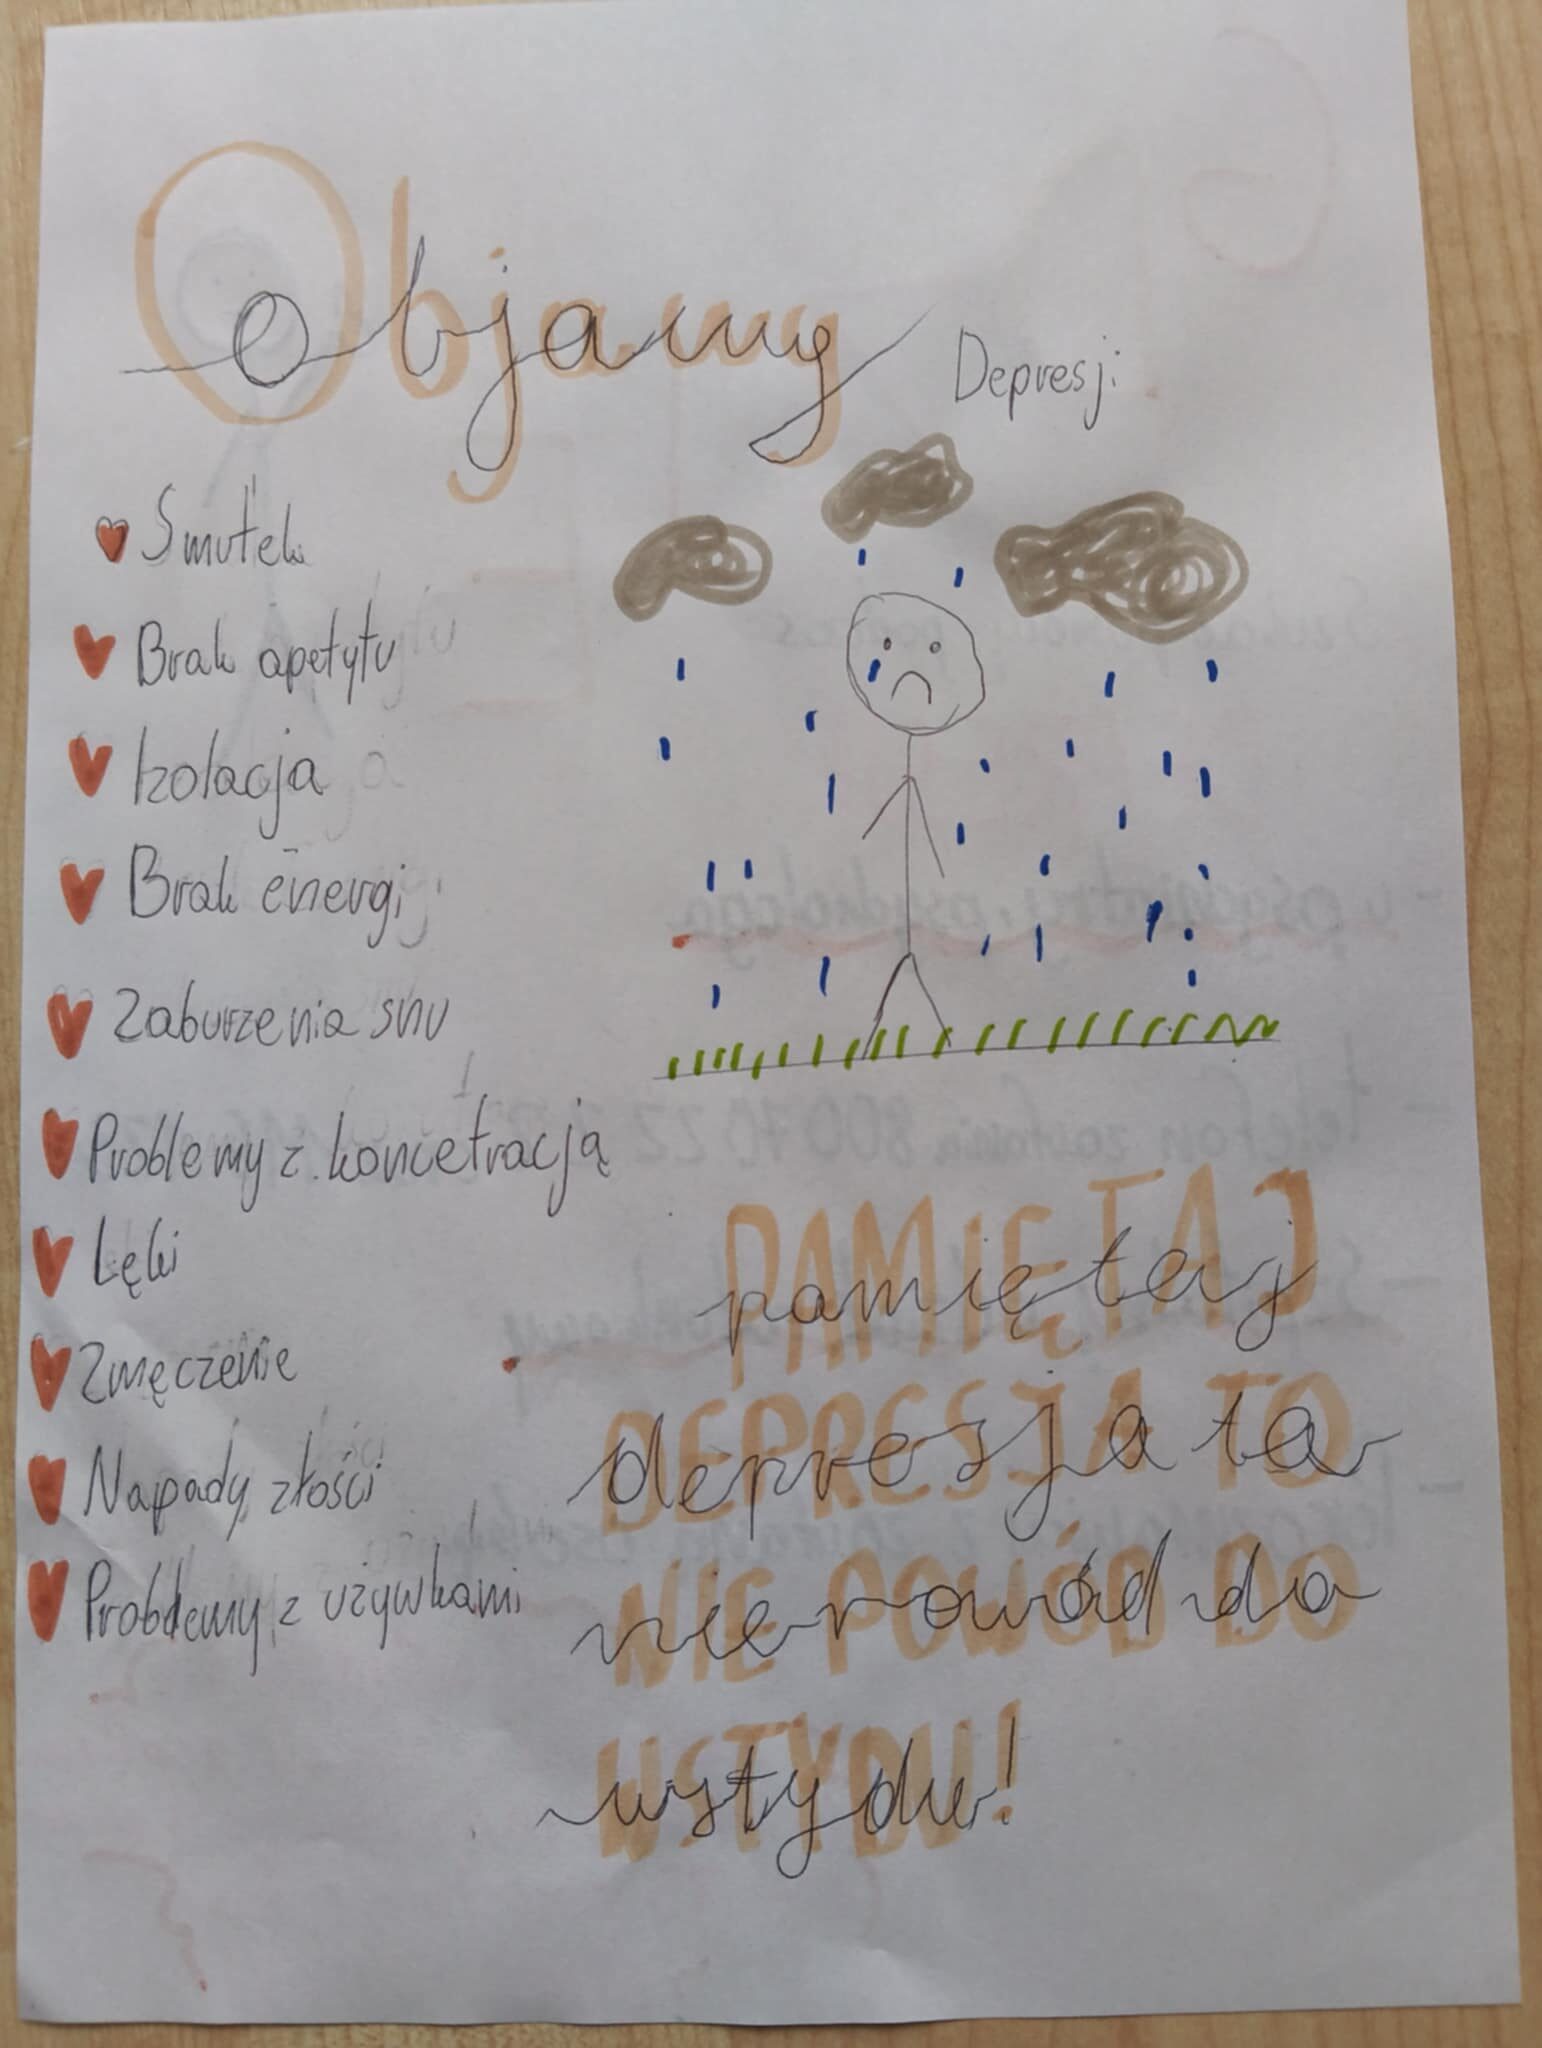 Objawy Depresji
Smutek
Brak apetytu
Izolacja
Brak energi
Zaburzenia snu
Problemy z koncetracją
Lęki
Zmęczenie
Napady złości
Problemy z używkami
PAMIĘTAJ
pamiętaj
DEPRESJA TO
depresja to
NIE POWÓD DO
nie powód do
WSTYDU!
wstydu!